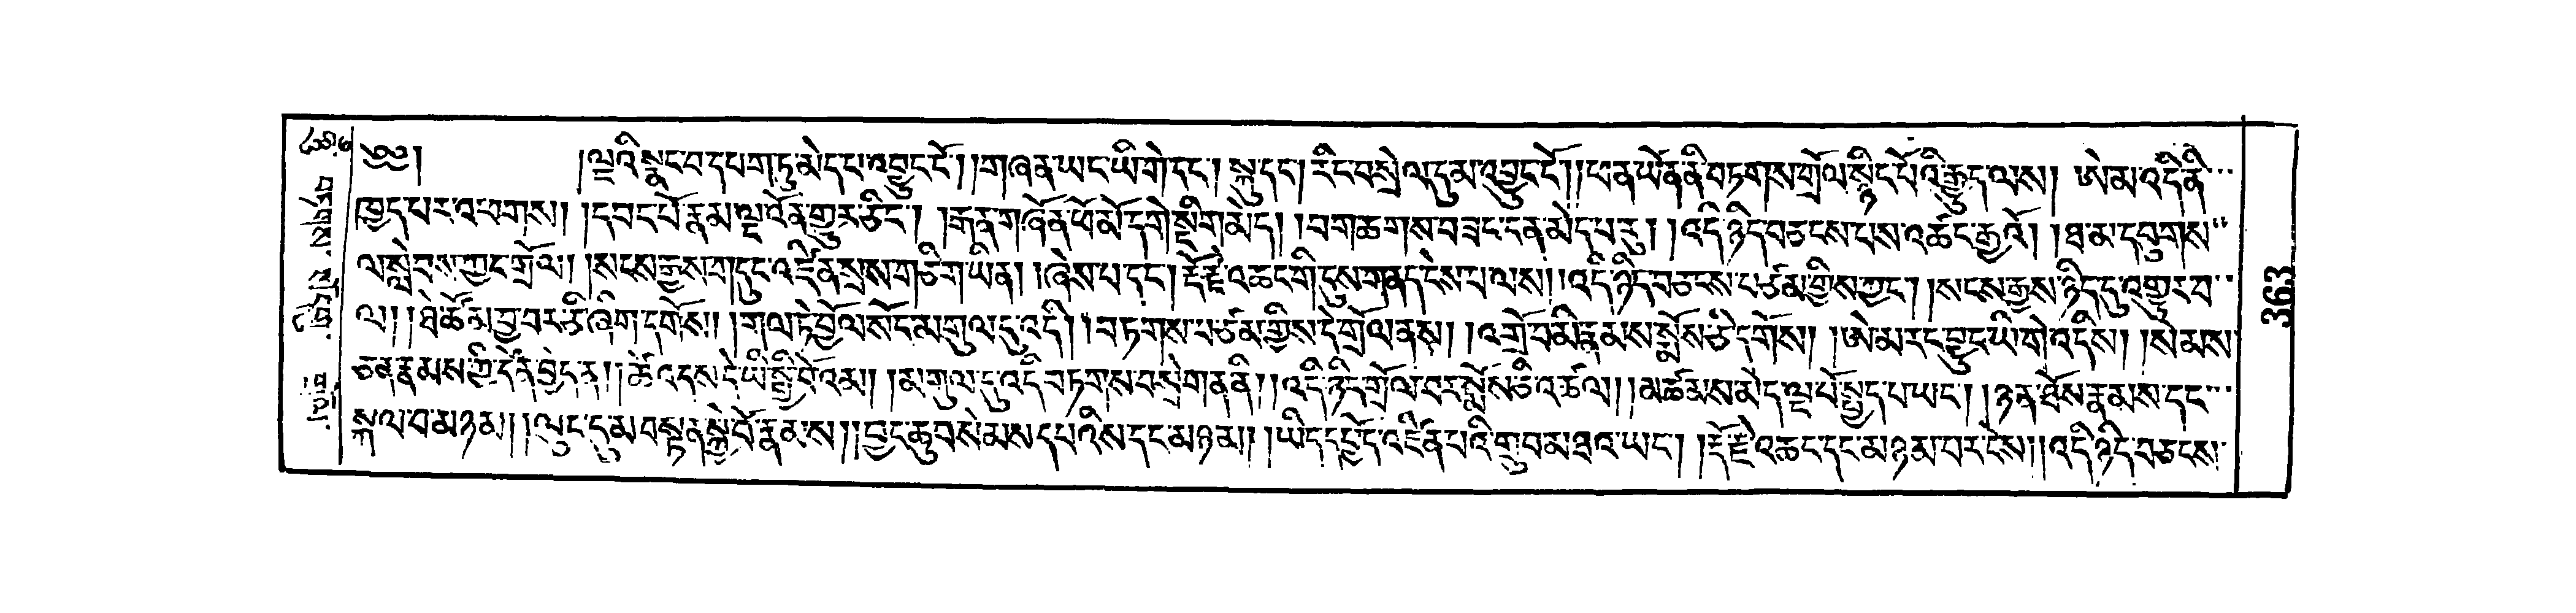 ༄༅། །ལྔའི་སྣང་བ་དཔག་ཏུ་མེད་པ་འབྱུང་ངོ༌། །གཞན་ཡང་ཡི་གེ་དང༌། སྐུ་དང༌། རིང་བསྲེལ་དུ་མ་འབྱུང་ངོ༌། །ཕན་ཡོན་ནི་བཏགས་གྲོལ་སྙིང་པོའི་རྒྱུད་ལས། ཨེ་མ་འདི་ནི་
ཁྱད་པར་འཕགས། །དབང་པོ་རྣམ་ལྔ་འོན་གྱུར་ཅིང༌། །རྒན་གཞོན་ཕོ་མོ་དགེ་སྡིག་མེད། །བག་ཆགས་བཟང་ངན་མེད་པ་རུ། །འདི་ཉིད་བཅངས་པས་འཚང་རྒྱའོ། །ཐ་མ་དབུགས་
ལ་སླེབས་ཀྱང་གྲོལ། །སངས་རྒྱས་གདུང་འཛིན་སྲས་གཅིག་ཡིན། །ཞེས་པ་དང༌། རྡོ་རྗེ་འཆང་གི་དུས་གནད་ངེས་པ་ལས། །འདི་ཉིད་བཅངས་པ་ཙམ་གྱིས་ཀྱང༌། །སངས་རྒྱས་ཉིད་དུ་འགྱུར་བ་
ལ། །ཐེ་ཚོམ་བྱ་བར་ཅི་ཞིག་དགོས། །གལ་ཏེ་བྱོལ་སོང་མགུལ་དུ་འདི། །བཏགས་པ་ཙམ་གྱིས་དེ་གྲོལ་ནས། །འགྲོ་བ་མི་རྣམས་སྨོས་ཅི་དགོས། །ཨེ་མ་རང་བྱུང་ཡི་གེ་འདིས། །སེམས་
ཅན་རྣམས་ཀྱི་དོན་བྱེད་ན། །ཚེ་འདས་དེ་ཡི་སྤྱི་བོ་འམ། །མགུལ་དུ་འདི་བཏགས་བསྲེག་ན་ནི། །འདི་ཉིད་གྲོལ་བར་སྨོས་ཅི་འཚལ། །མཚམས་མེད་ལྔ་པོ་སྤྱད་པ་ཡང༌། །ཉན་ཐོས་རྣམས་དང་
སྐལ་བ་མཉམ། །ལུང་དུ་མ་བསྟན་སྐྱེ་བོ་རྣམས། །བྱང་ཆུབ་སེམས་དཔའ་ཡིས་དང་མཉམ། །ཡི་དྭགས་འཛིན་པའི་གྲུབ་མཐའ་ཡང༌། །རྡོ་རྗེ་འཆང་དང་མཉམ་པར་ངེས། །འདི་ཉིད་བཅངས་